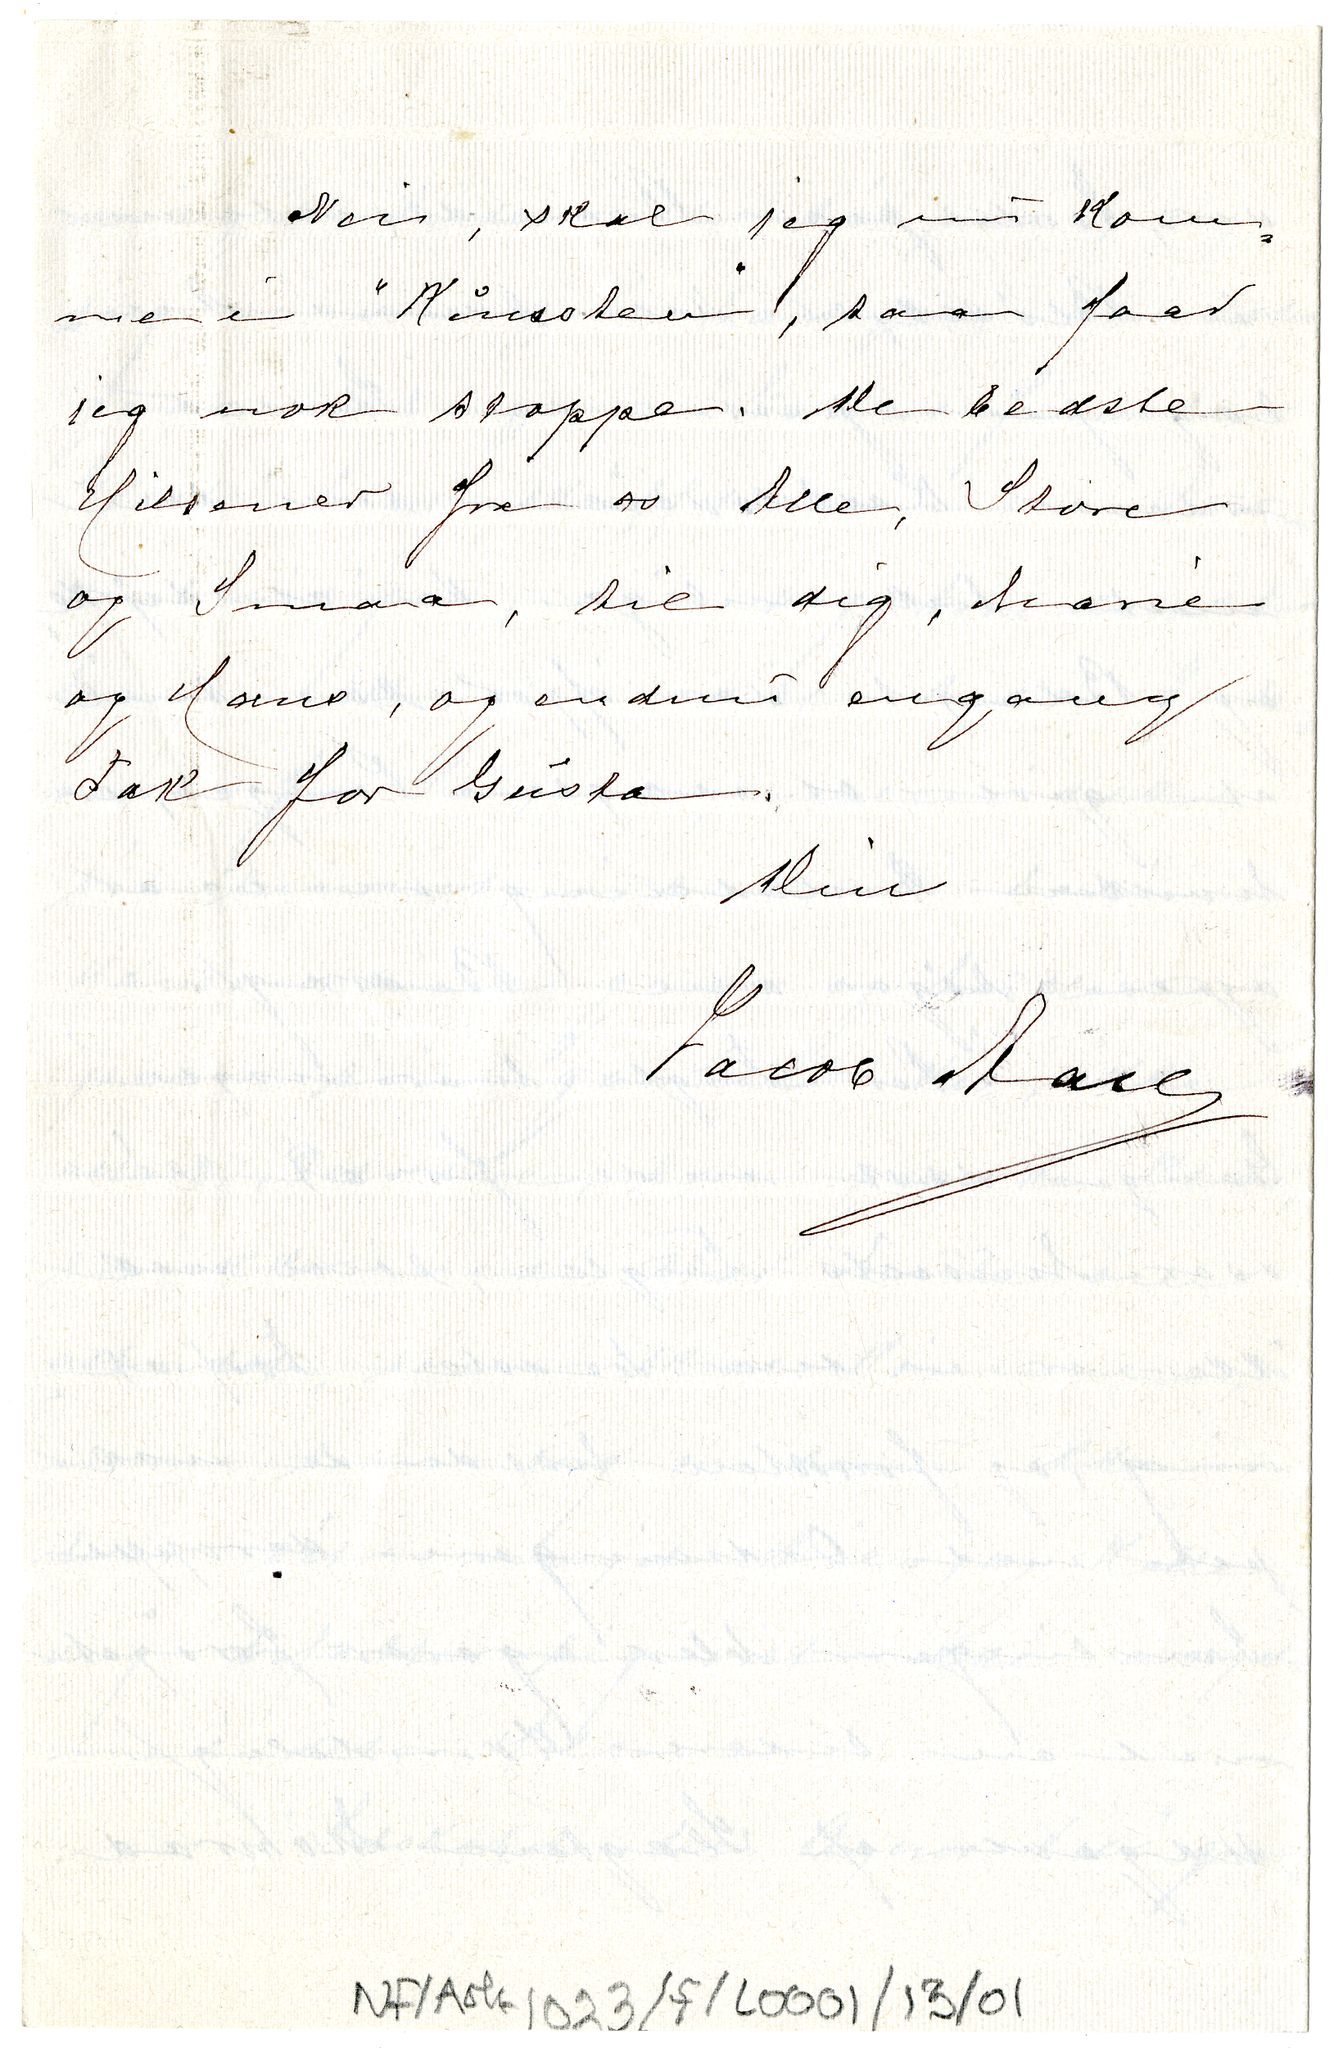 Nei, skal jeg nu kom=
me i "Kunsten", saa faar
jeg nok stoppe. De bedste
Hilsener fra os Alle, Store
og Smaa, til dig, Marie
og Hans, og endnu engang
Tak for Gusta.
Din
Jacob Aall
NF/Ark 1023/f/L0001/13/01